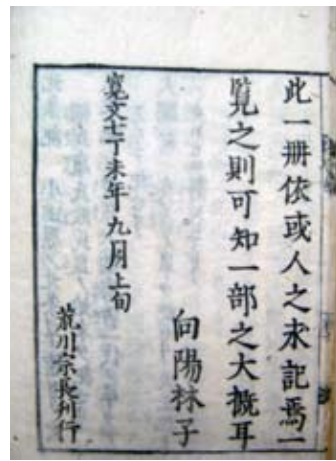 此一册依或人之求記焉一
覧之則可知一部之大概耳
向陽林子
寛文七丁未年九月上旬
荒川宗長刊行